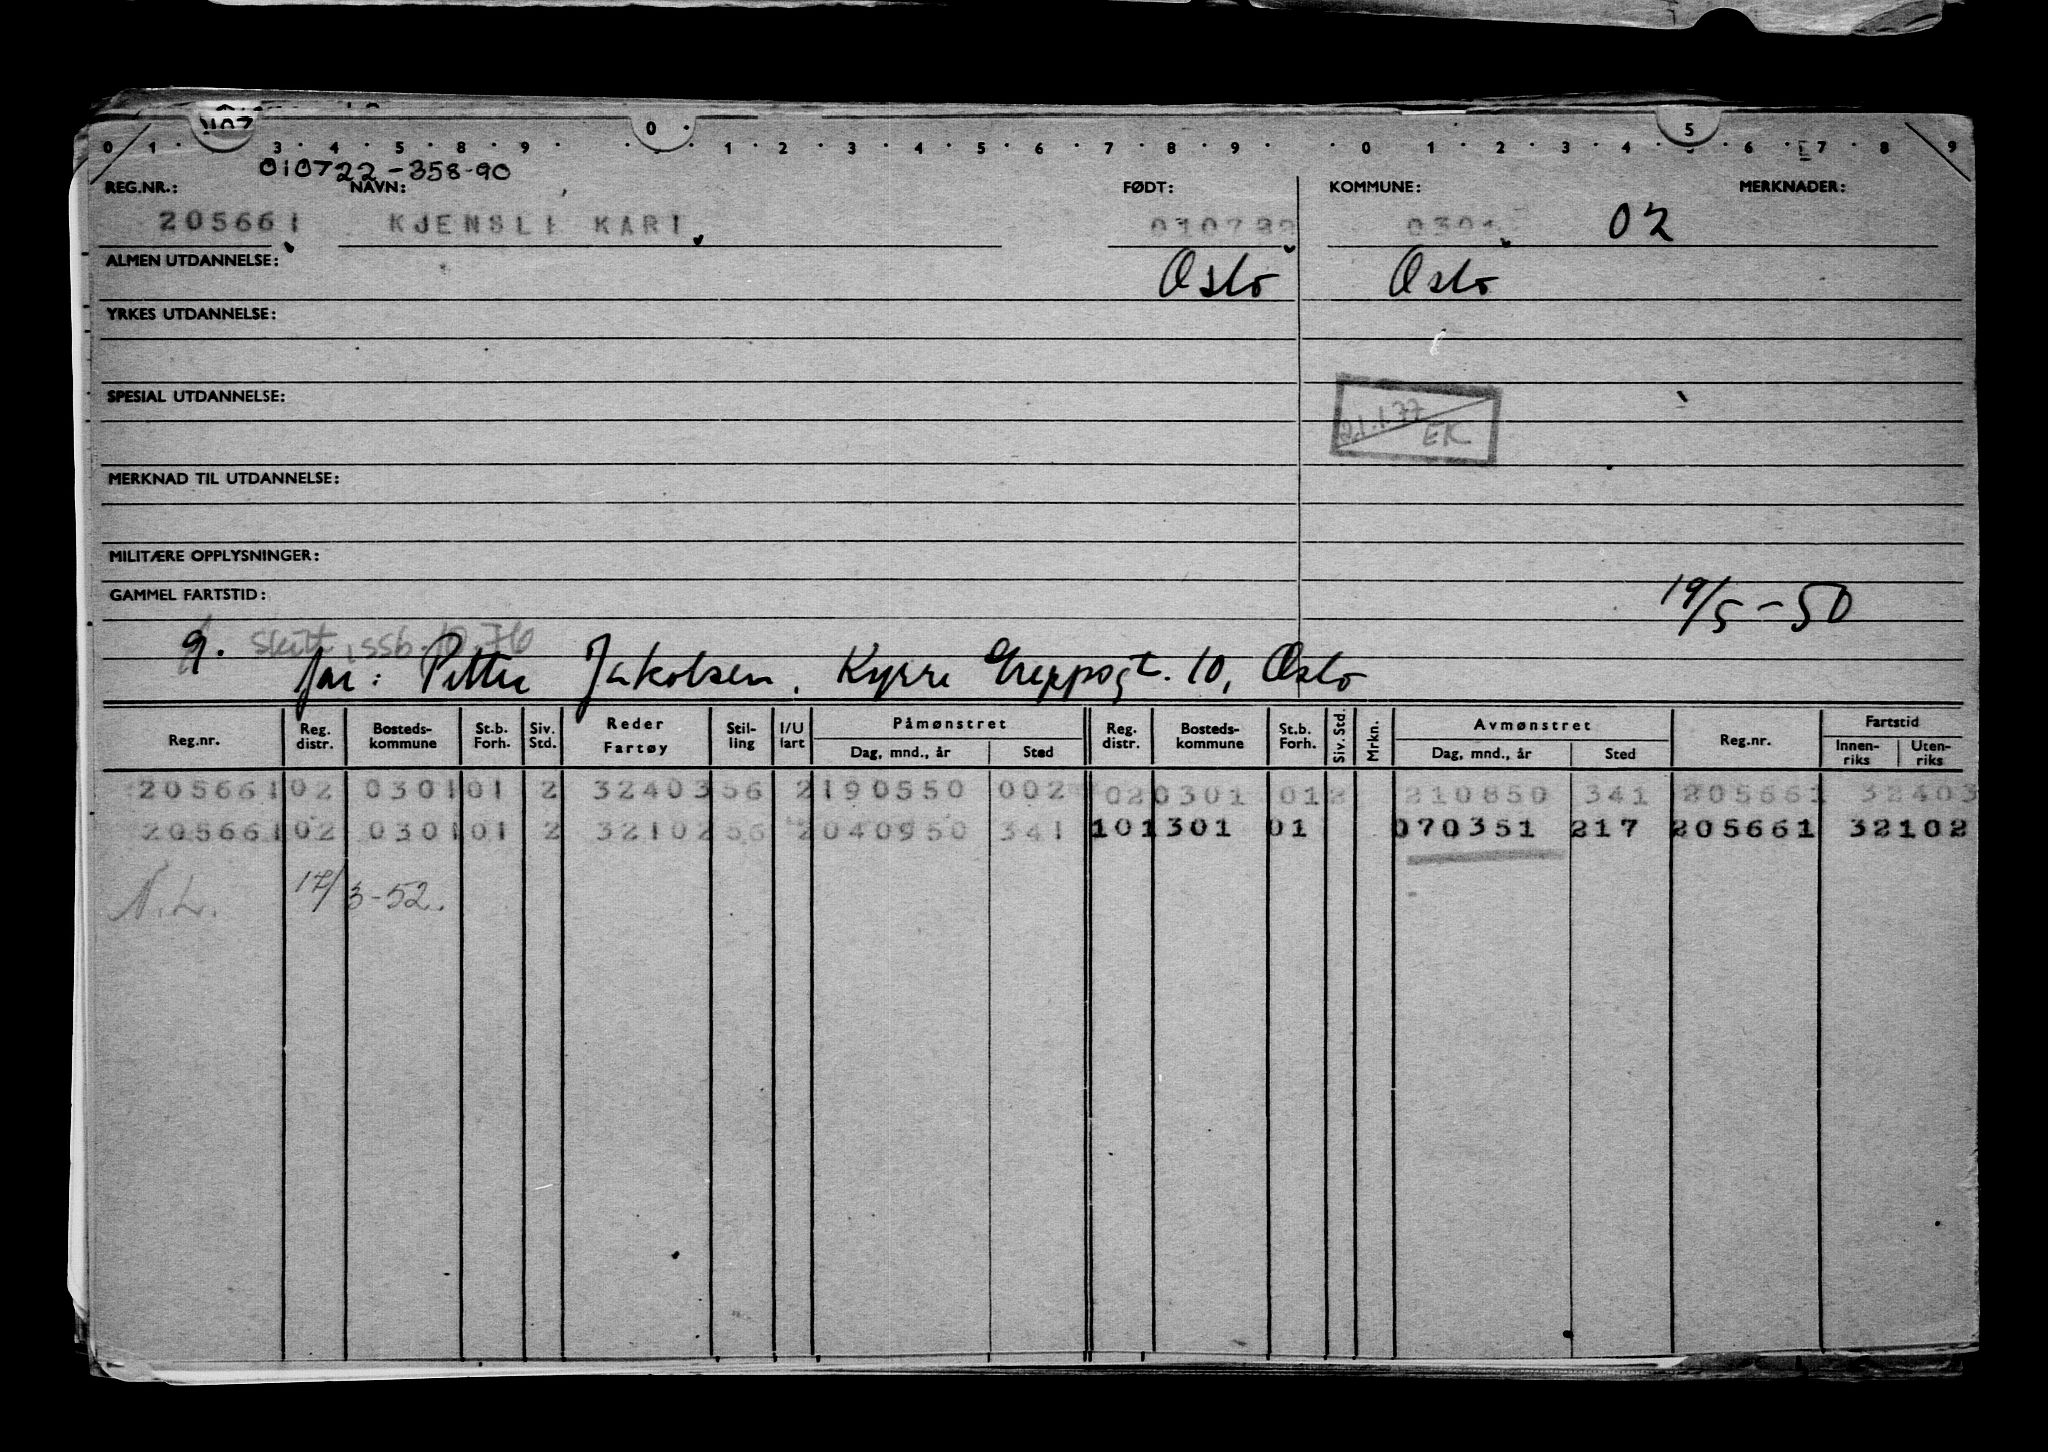 0
5
0 1 · 3 · 4 · 5 · 8 · 9 · · 1 · 2 · 3 · 4 · 5 · 6 · 7 · 8 · 9 · · 0 · 1 · 2 · 3 · 4 · 5 · 6 · 7 · 8 · 9
010722-358-90
REG.NR.: NAVN: FØDT: KOMMUNE: MERKNADER:
205661 KJENSLI KARI 010722 0301 02
ALMEN UTDANNELSE: Oslo Oslo
YRKES UTDANNELSE:
SPESIAL UTDANNELSE:
21.1.77
EK
MERKNAD TIL UTDANNELSE:
MILITÆRE OPPLYSNINGER:
GAMMEL FARTSTID: 19/5-50
g. skilt, ssb. 10.76
far: Petter Jakobsen, Kyrre Greppsgt. 10, Oslo
Reg.nr. Reg. distr. Bosteds-kommune St.b. Forh. Siv. Std. Reder Fartøy Stil-ling I/U fart Påmønstret Dag, mnd., år Sted Reg. distr. Bosteds-kommune St.b. Forh. Siv. Std. Mrkn. Avmønstret Dag, mnd., år Sted Reg.nr. Fartstid Innen-riks Uten-riks
205661 02 0301 01 2 32403 56 2 190550 002 02 0301 01 2 210850 341 205661 32403
205661 02 0301 01 2 32102 56 2 040950 341 101301 01 070351 217 205661 32102
N.L. 17/3-52.